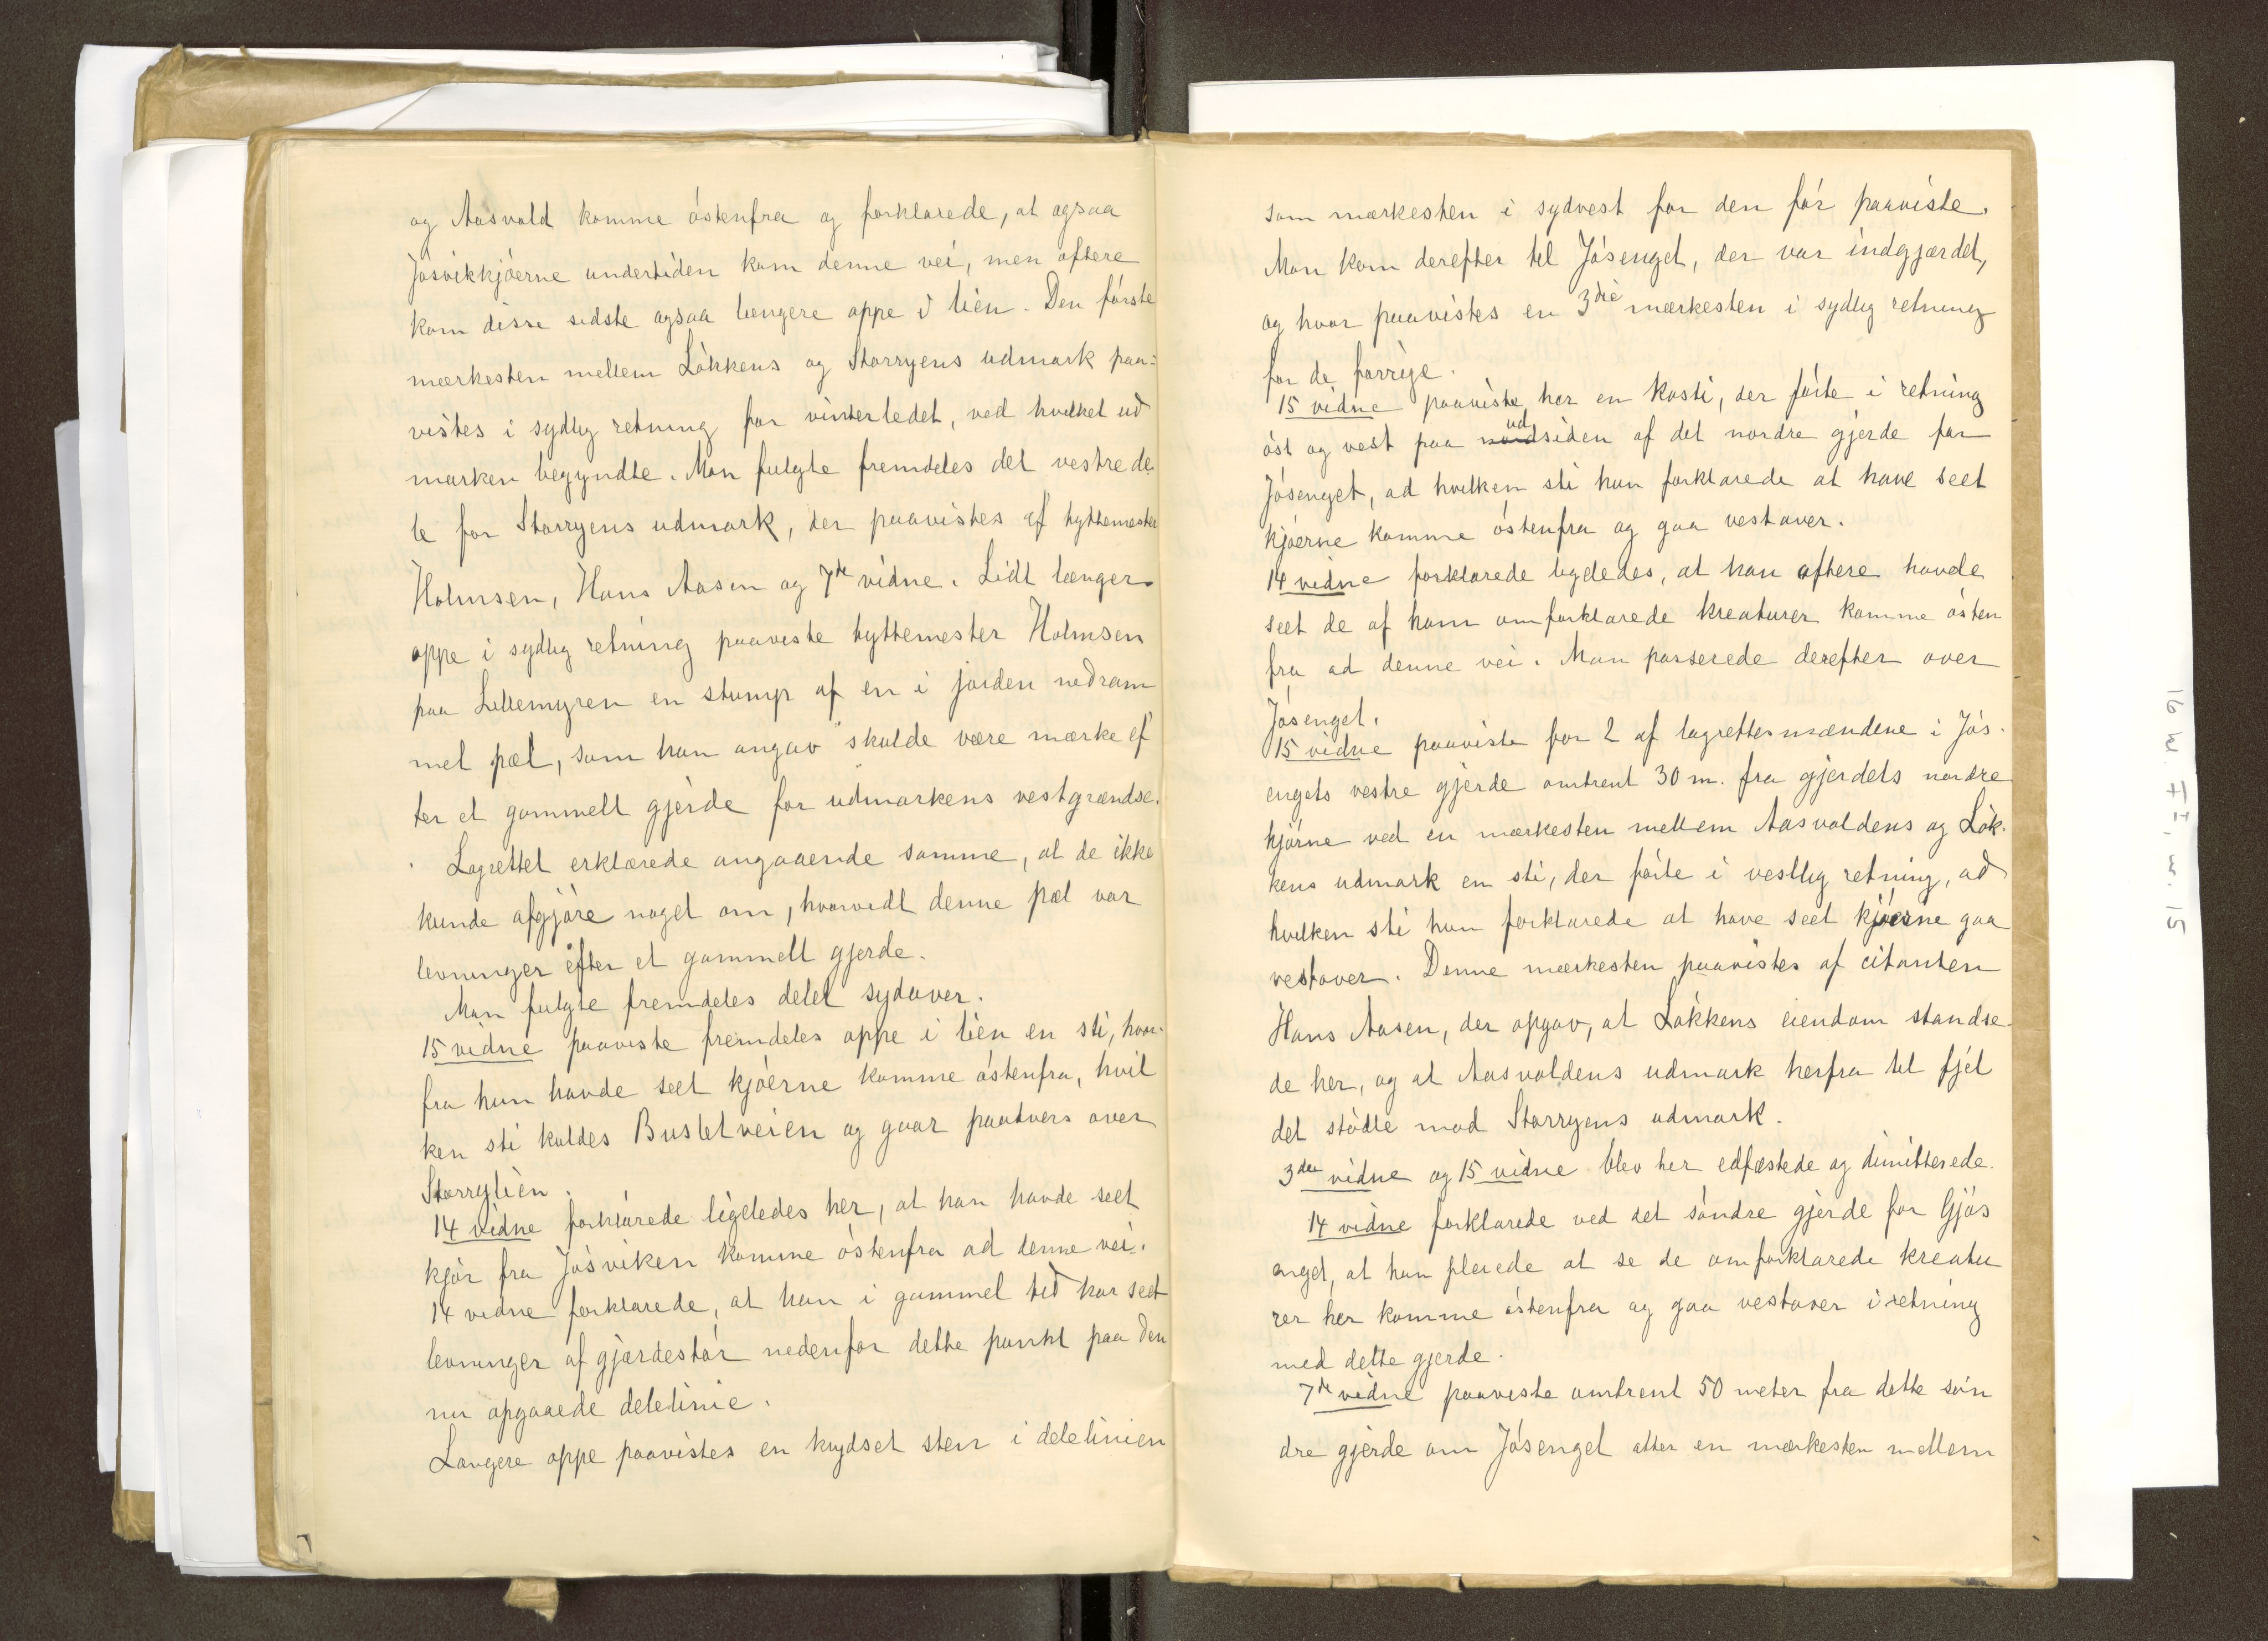 og Aasvold komme östenfra og forklarede, at ogsaa
Jösvikkjöerne undertiden kom denne vei, men oftere
kom disse sidste ogsaa længere oppe i lien. Den förste
mærkesten mellem Lökkens og Storryens udmark paa-
vistes i sydlig retning for vinterledet, ved hvilket ud
marken begyndte. Man fulgte fremdeles det vestre de-
le for Storryens udmark, der paavistes af hyttemester
Holmsen, Hans Aasen og 7de vidne. Lidt længer
oppe i sydlig retning paaviste hyttemester Holmsen
paa Lillemyren en stump af en i jorden nedram
met pæl, som han angav skulde være mærke ef
ter et gammelt gjerde for udmarkens vestgrændse.
Lagrettet erklærede angaaende samme, at de ikke
kunde afgjöre noget om, hvorvidt denne pæl var
levninger efter et gammelt gjerde.
Man fulgte fremdeles delet sydover.
15 vidne paaviste fremdeles oppe i lien en sti, hvor-
fra hun havde seet kjöerne komme östenfra, hvil
ken sti kaldes Busletveien og gaar paatvers over
Storrylien.
14 vidne forklarede ligeledes her, at han havde seet
kjör fra Jösviken komme östenfra ad denne vei.
14 vidne forklarede, at han i gammel tid har seet
levninger af gjærdestör nedenfor dette punkt paa den
nu opgaaede delelinie.
Længere oppe paavistes en krydset sten i delelinien
som mærkesten i sydvest for den för paaviste.
Man kom derefter til Jösenget, der var indgjærdet,
og hvor paavistes en 3die mærkesten i sydlig retning
for de forrige.
15 vidne paaviste her en kosti, der förte i retning
öst og vest paa nordsiden af det nordre gjerde for
ud
Jösenget, ad hvilken sti hun forklarede at have seet
kjöerne komme östenfra og gaa vestover.
14 vidne forklarede ligeledes, at han oftere havde
seet de af ham omforklarede kreaturer komme östen
fra ad denne vei. Man passerede derefter over
Jösenget.
15 vidne paaviste for 2 af lagrettesmændene i Jös-
engets vestre gjerde omtrent 30 m. fra gjerdets nordre
hjörne ved en mærkesten mellem Aasvoldens og Lök-
kens udmark en sti, der förte i vestlig retning, ad
hvilken sti hun forklarede at have seet kjöerne gaa
vestover. Denne mærkesten paavistes af citanten
Hans Aasen, der opgav, at Lökkens eiendom standse-
de her, og at Aasvoldens udmark herfra til fjel
det stödte mod Storryens udmark.
3die vidne og 15 vidne blev her edfæstede og dimitterede.
14 vidne forklarede ved det söndre gjerde for Gjös
enget, at han pleiede at se de omforklarede kreatu
rer her komme östenfra og gaa vestover i retning
med dette gjerde.
7de vidne paaviste omtrent 50 meter fra dette sön
dre gjerde om Jösenget atter en mærkesten mellem
16 w. 7I, w. 15